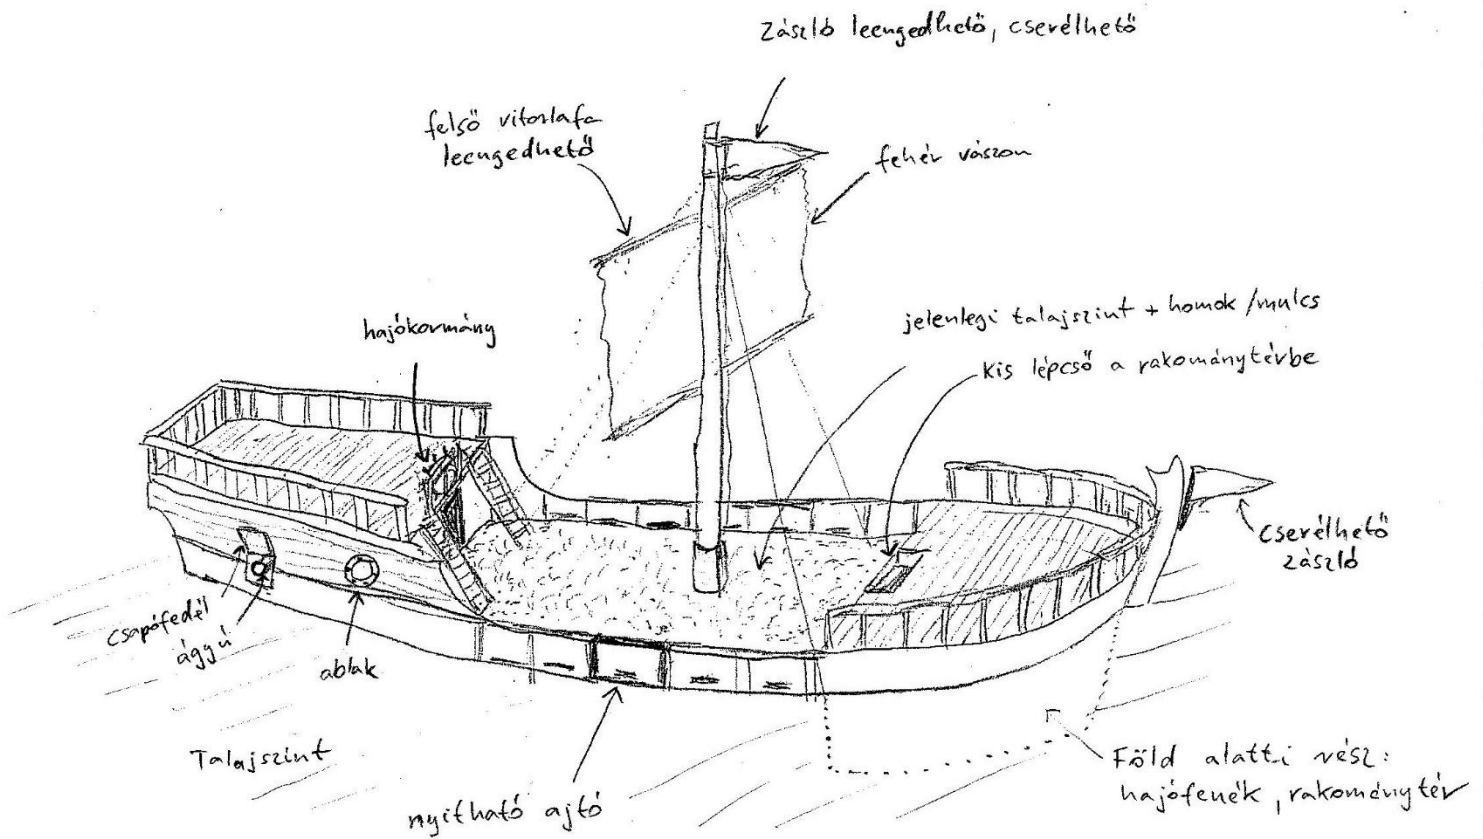 zászló leengedhető, cserélhető
felső vitorlafa
leengedhető
fehér vászon
hajókormány
jelenlegi talajszint + homok/mulcs
kis lépcső a rakománytérbe
cserélhető
zászló
csapófedél
ágyú
ablak
Talajszint
nyitható ajtó
Föld alatti rész:
hajófenék, rakománytér